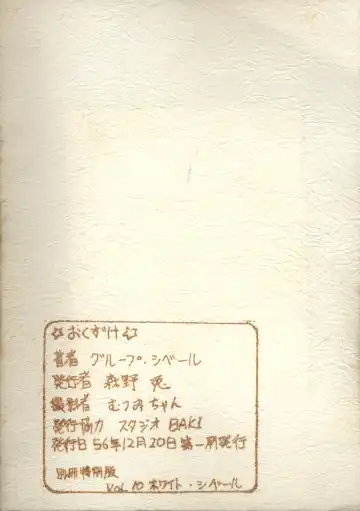 ☆おくずけ☆
著者 グループ・シベール
発行者 森野 兎
撮影者 むつみちゃん
発行協力 スタジオ BAKI
発行日 56年12月20日 第一刷発行
別冊特別版
Vol. 10 ホワイト・シベール